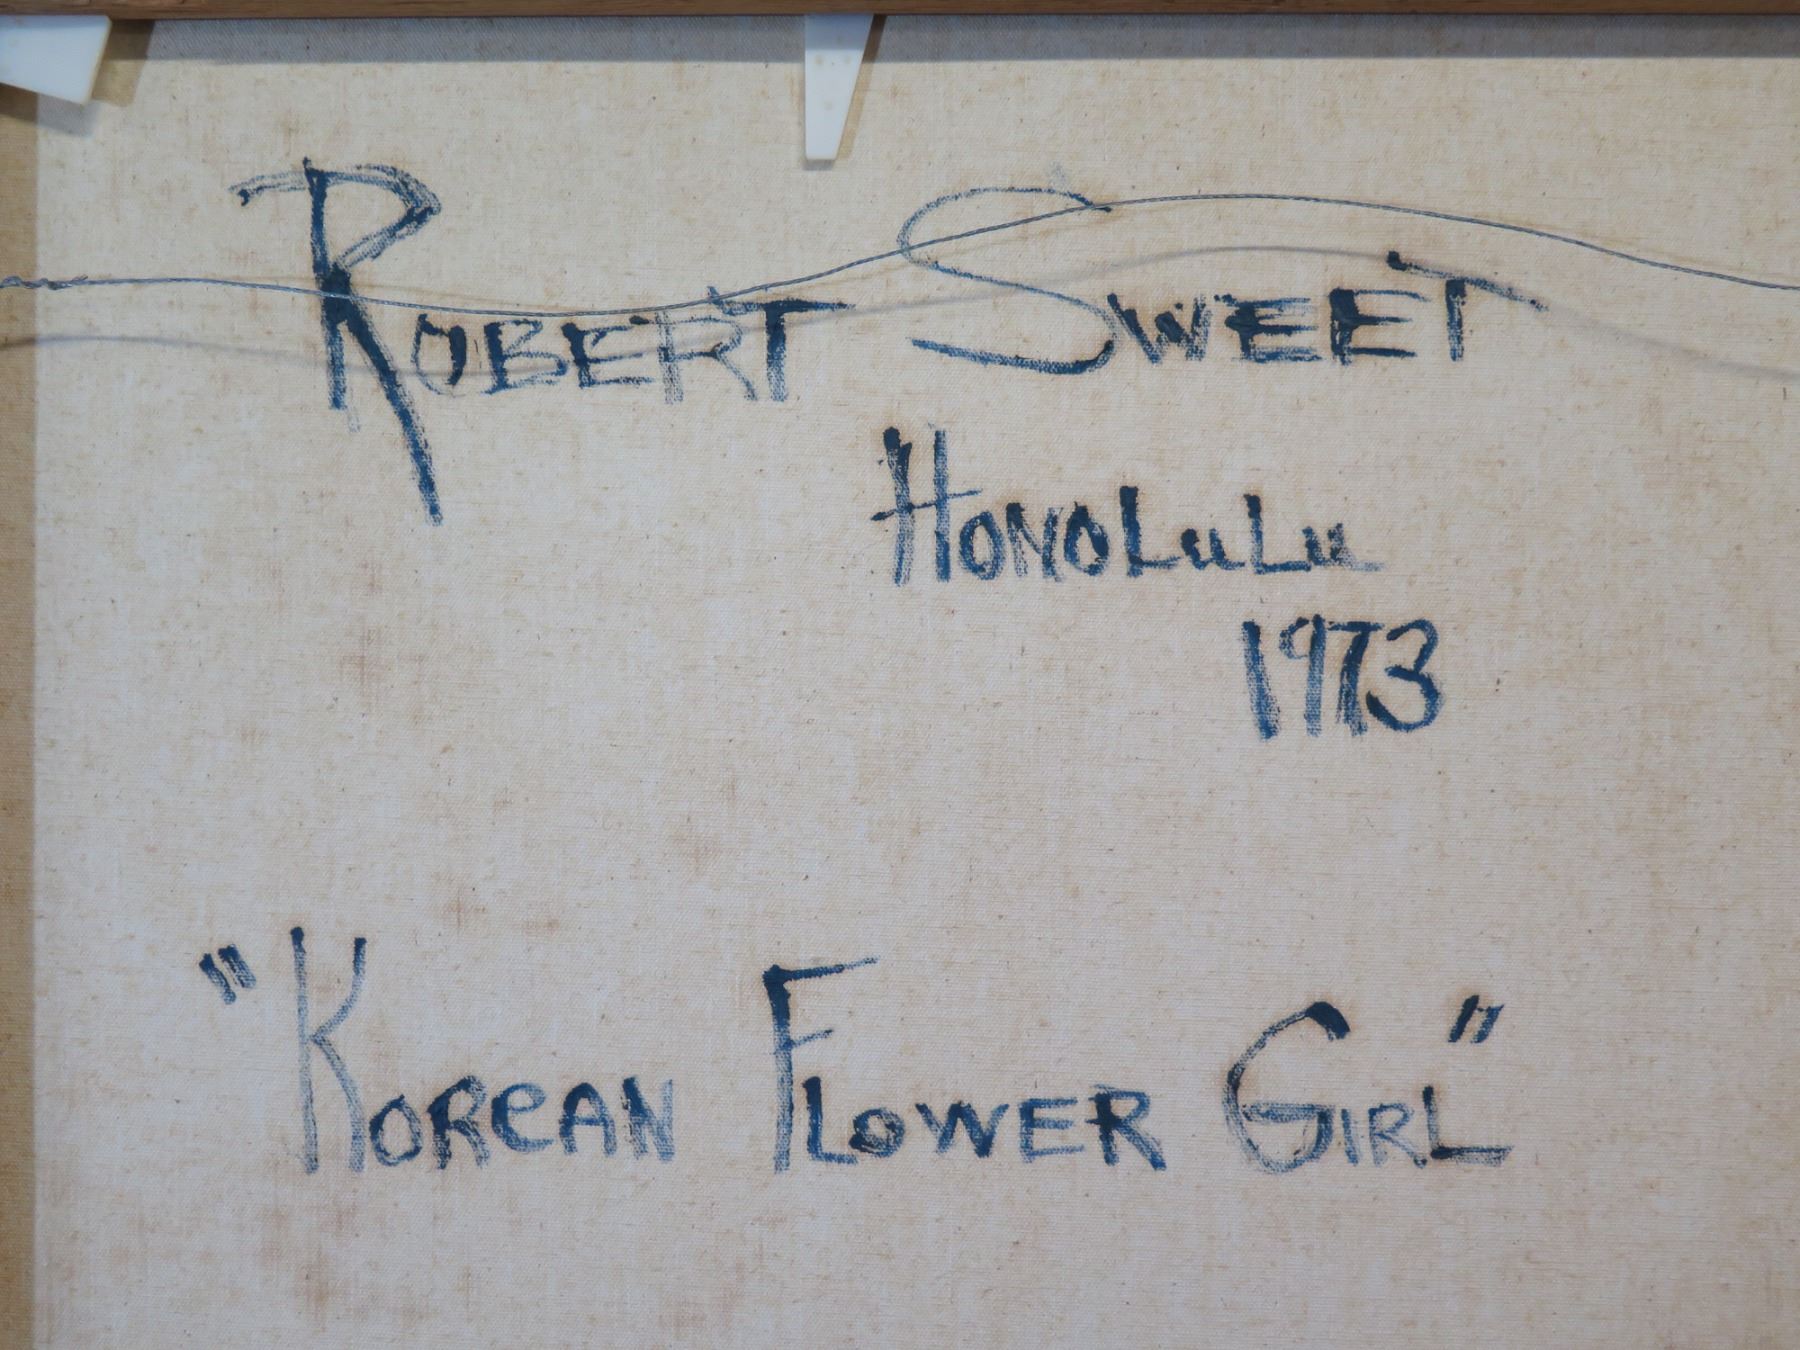 Robert Sweet
Honolulu
1973
"Korean Flower Girl"